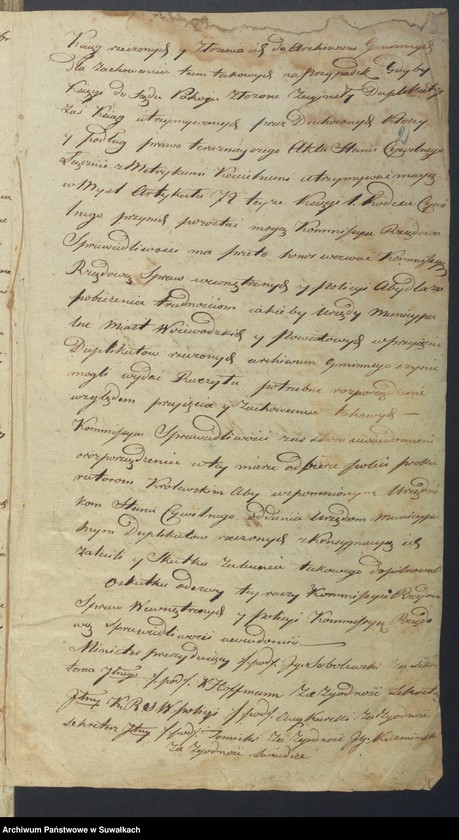 Xiąg rzeczonych y Złożenia ich do Archiwów Gminnych
dla zachowania tam takowych na przypadek Gdyby
Księgi do Sądu Pokoju złożone zaginęły Duplikaty
zaś Xiąg utrzymywanych przez Duchownych którzy
y podług prawa terazniejszego Akta Stanu Cywilnego
Łącznie z Metrykami Kościelnemi utrzymywać mają
w Myśl Artykułu 72 teyże Księgi 1. Kodexu Cywi
lnego przy nich pozostać mogą Kommissya Rządowa
Sprawiedliwości ma przeto honor wezwać Kommissyą
Rządową Spraw wewnętrznych y Policyi Aby dla za
pobieżenia trudnościom jakieby Urzędy Municypa
lne Miast Woiewodzkich y Powiatowych w przyjęciu
Duplikatów rzeczonych archiwum Gminnego czynić
mogli wydać Raczyła potrzebne rozporządzenie
względem przyjęcia y Zachowania takowych —
Kommissya Sprawiedliwości zaś uwiadomieniu
o rozporządzeniu w tey mierze odbierze poleci proku
ratorom Królewskim Aby wspomnionym Urzędni
kom Stanu Cywilnego oddania Urzędom Municypa
lnym Duplikatów rzeczonych z Konsygnacyą ich
zalecili y Skutku zalecenia takowego dopilnowali
O skutku odezwy tey raczy Kommissya Rządowa
Spraw Wewnętrznych y policyi Kommissyą Rządo
wą Sprawiedliwości uwiadomić —
Minister prezyduiący /: pod: Ig. Sobolewski Za Sekre
tarza Jlnego /: pod: Hoffmann Za Zgodność Sekretarz
Jlny K. R. S. W. y policyi /: pod: Aug Karski Za Zgodność
Sekretarz Jlny /: pod: Tomicki Za Zgodność
Za Zgodność świadczę
2
Archiwum Państwowe w Suwałkach